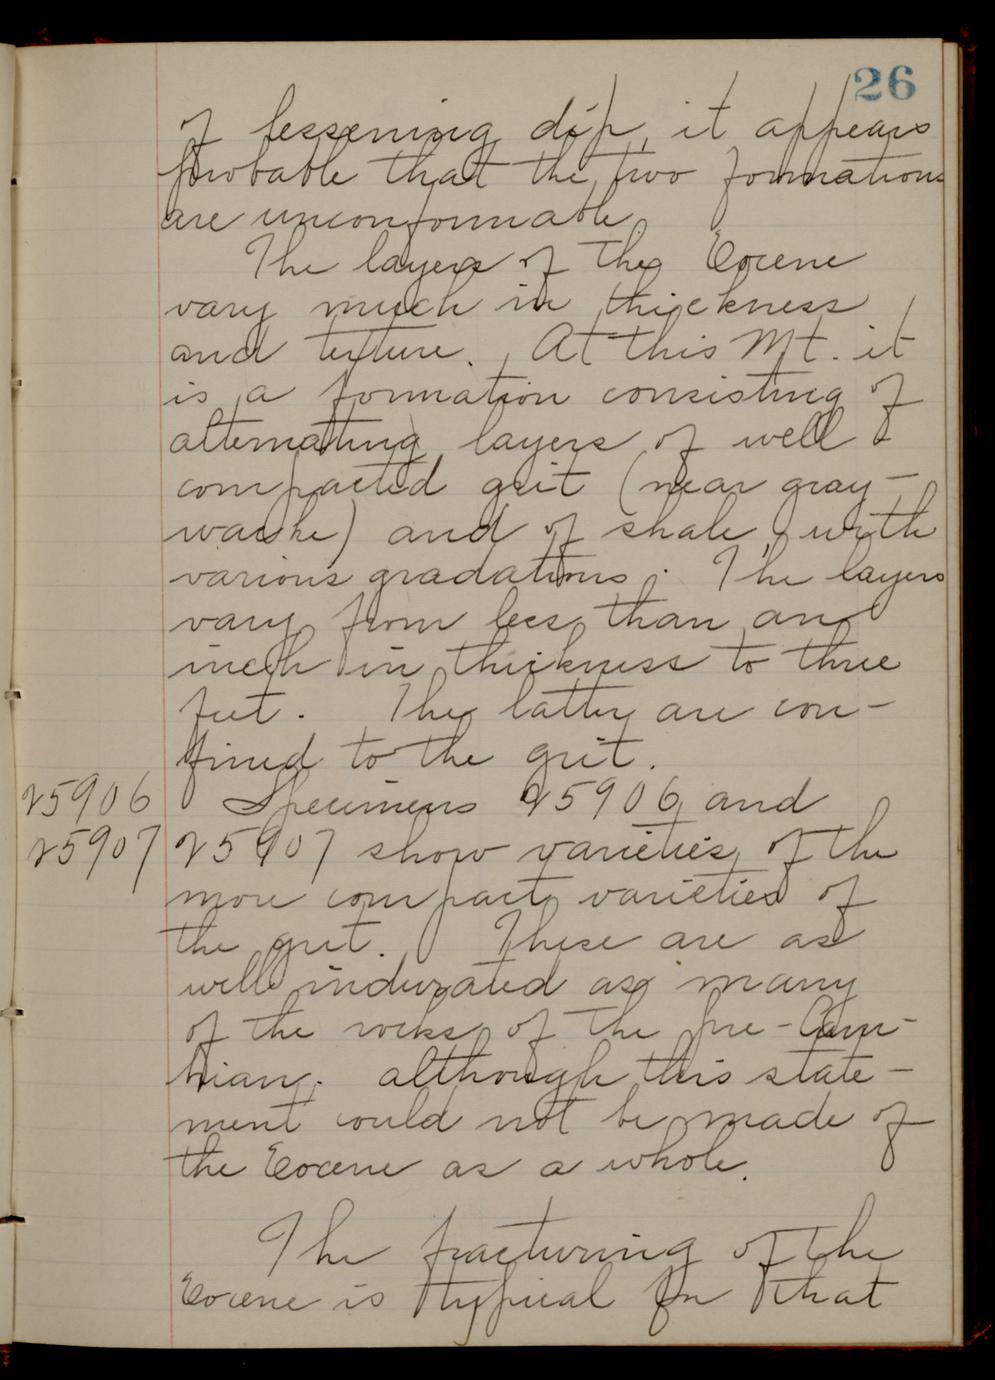 26
of lessening dip, it appears
probable that the two formations
are unconformable.
The layers of the Eocene
vary much in thickness
and texture. At this Mt. it
is a formation consisting of
alternating layers of well
compacted grit (near gray-
wacke) and of shale, with
various gradations. The layers
vary from less than an
inch in thickness to three
feet. The latter are con-
fined to the grit.
25906 Specimens 25906 and
25907 25907 show varieties of the
more compact varieties of
the grit. These are as
well indurated as many
of the rocks of the pre-Cam-
brian. although this state-
ment could not be made of
the Eocene as a whole.
The fracturing of the
Eocene is typical for that